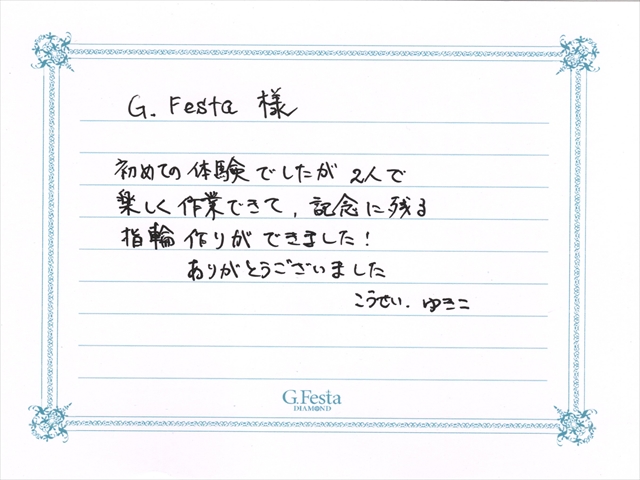 G. Festa 様
初めての体験でしたが 2人で
楽しく作業できて、記念に残る
指輪作りができました!
ありがとうございました
こうせい. ゆきこ
G.Festa
DIAMOND